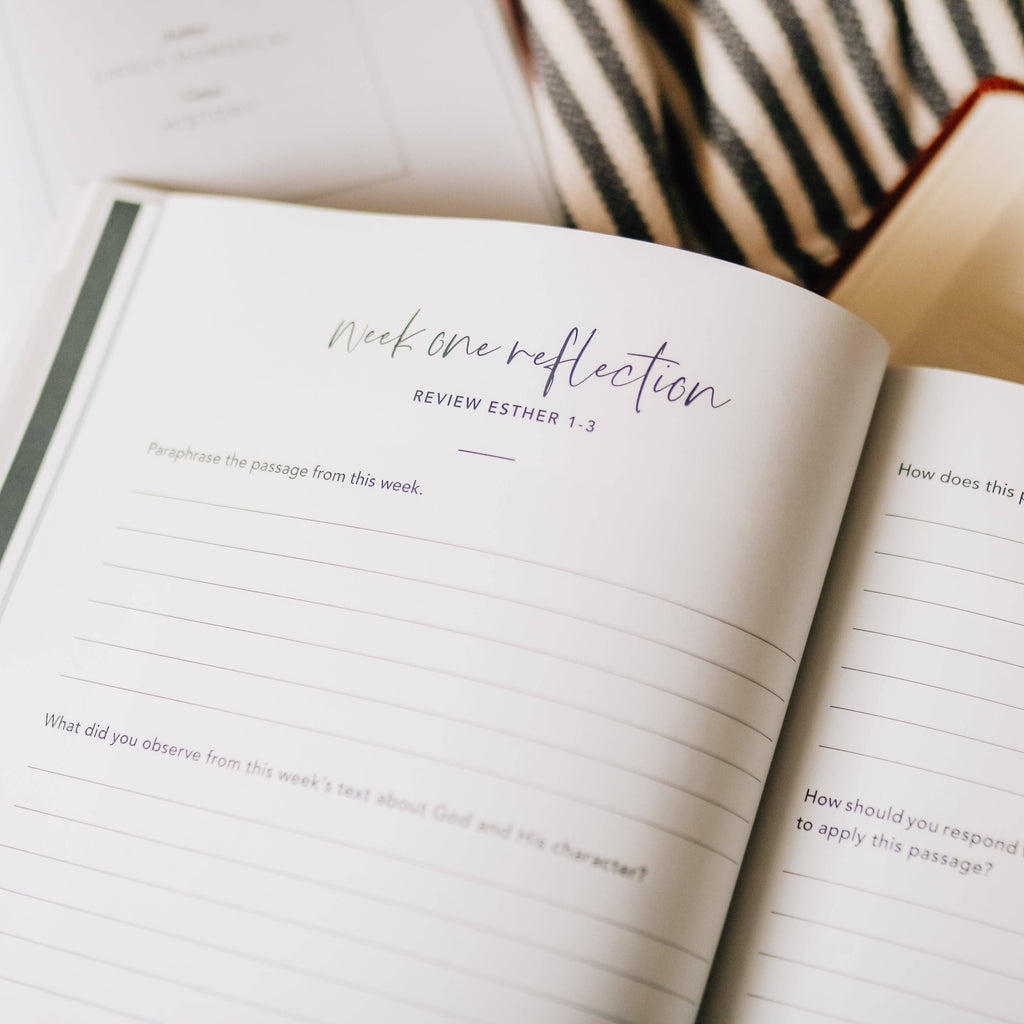 Author
Genre
HISTORY
week one reflection
REVIEW ESTHER 1-3
Paraphrase the passage from this week.
What did you observe from this week's text about God and His character?
How does this
How should you respond
to apply this passage?